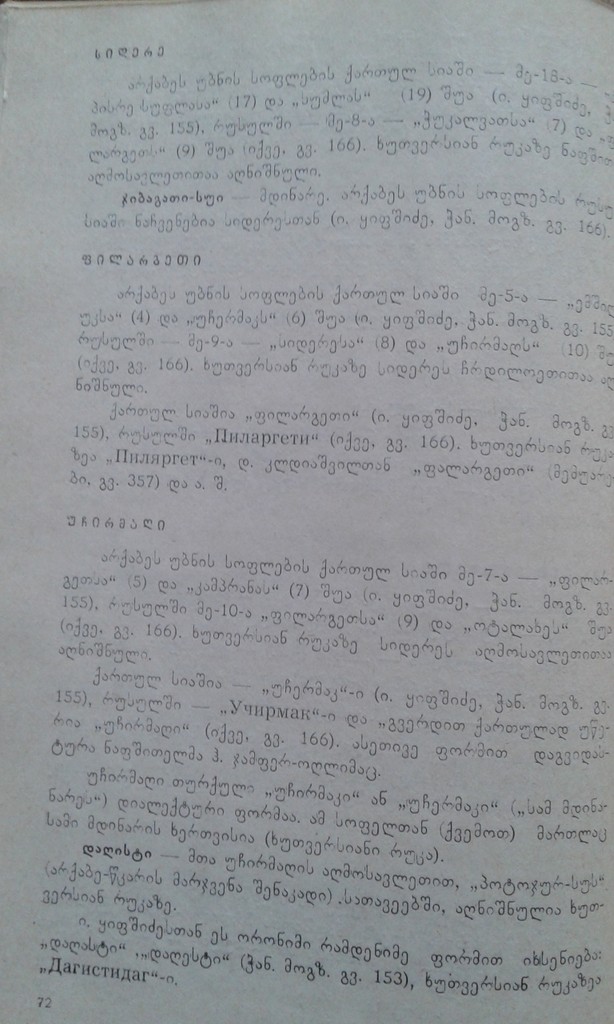 სიდერე
არქაბეს უბნის სოფლების ქართულ სიაში — მე-18-ა —
პისრე სუფლასა“ (17) და „სუმლას“ (19) შუა (ი. ყიფშიძე,
მოგზ. გვ. 155), რუსულში — მე-8-ა — „ჭუკალვათსა“ (7) და
ლარგეთს“ (9) შუა (იქვე, გვ. 166). ხუთვერსიან რუკაზე ნაფშით
აღმოსავლეთითაა აღნიშნული.
ჯიბაგათი-სუი — მდინარე. არქაბეს უბნის სოფლების რუსულ
სიაში ნაჩვენებია სიდერესთან (ი. ყიფშიძე, ჭან. მოგზ. გვ. 166).
ფილარგეთი
არქაბეს უბნის სოფლების ქართულ სიაში მე-5-ა —
უკსა“ (4) და „უჩერმაკს“ (6) შუა (ი. ყიფშიძე, ჭან. მოგზ. გვ. 155
რუსულში — მე-9-ა — „სიდერესა“ (8) და „უჩირმაღს“ (10) შუ
(იქვე, გვ. 166). ხუთვერსიან რუკაზე სიდერეს ჩრდილოეთითაა აღ
ნიშნული.
ქართულ სიაშია „ფილარგეთი“ (ი. ყიფშიძე, ჭან. მოგზ. გვ
155), რუსულში „Пиларгети“ (იქვე, გვ. 166). ხუთვერსიან რუკა
ზეა „Пиляргет“-ი, დ. კლდიაშვილთან „ფალარგეთი“ (მემუარე
ბი, გვ. 357) და ა. შ.
უჩირმაღი
არქაბეს უბნის სოფლების ქართულ სიაში მე-7-ა — „ფილარ-
გეთსა“ (5) და „კამპრანას“ (7) შუა (ი. ყიფშიძე, ჭან. მოგზ. გვ.
155), რუსულში მე-10-ა „ფილარგეთსა“ (9) და „ოტალახეს“ შუა
(იქვე, გვ. 166). ხუთვერსიან რუკაზე სიდერეს აღმოსავლეთითაა
აღნიშნული.
ქართულ სიაშია — „უჩერმაკ“-ი (ი. ყიფშიძე, ჭან. მოგზ. გვ.
155), რუსულში — „Учирмак“-ი და „გვერდით ქართულად უწე-
რია „უჩირმაღი“ (იქვე, გვ. 166). ასეთივე ფორმით დაგვიდას-
ტურა ნაფშითელმა ჰ. ჯამფერ-ოღლიმაც.
უჩირმაღი თურქული „უჩირმაკი“ ან „უჩერმაკი“ („სამ მდინა-
ნარეს“) დიალექტური ფორმაა. ამ სოფელთან (ქვემოთ) მართლაც
სამი მდინარის ხერთვისია (ხუთვერსიანი რუკა).
დაღისტი — მთა უჩირმაღის აღმოსავლეთით, „პოტოჯურ-სუს“
(არქაბე-წკარის მარჯვენა შენაკადი) სათავეებში, აღნიშნულია ხუთ-
ვერსიან რუკაზე.
ი. ყიფშიძესთან ეს ორონიმი რამდენიმე ფორმით იხსენიება:
„დაღასტი“, „დაღესტი“ (ჭან. მოგზ. გვ. 153), ხუთვერსიან რუკაზეა
„Дагистидаг“-ი.
72